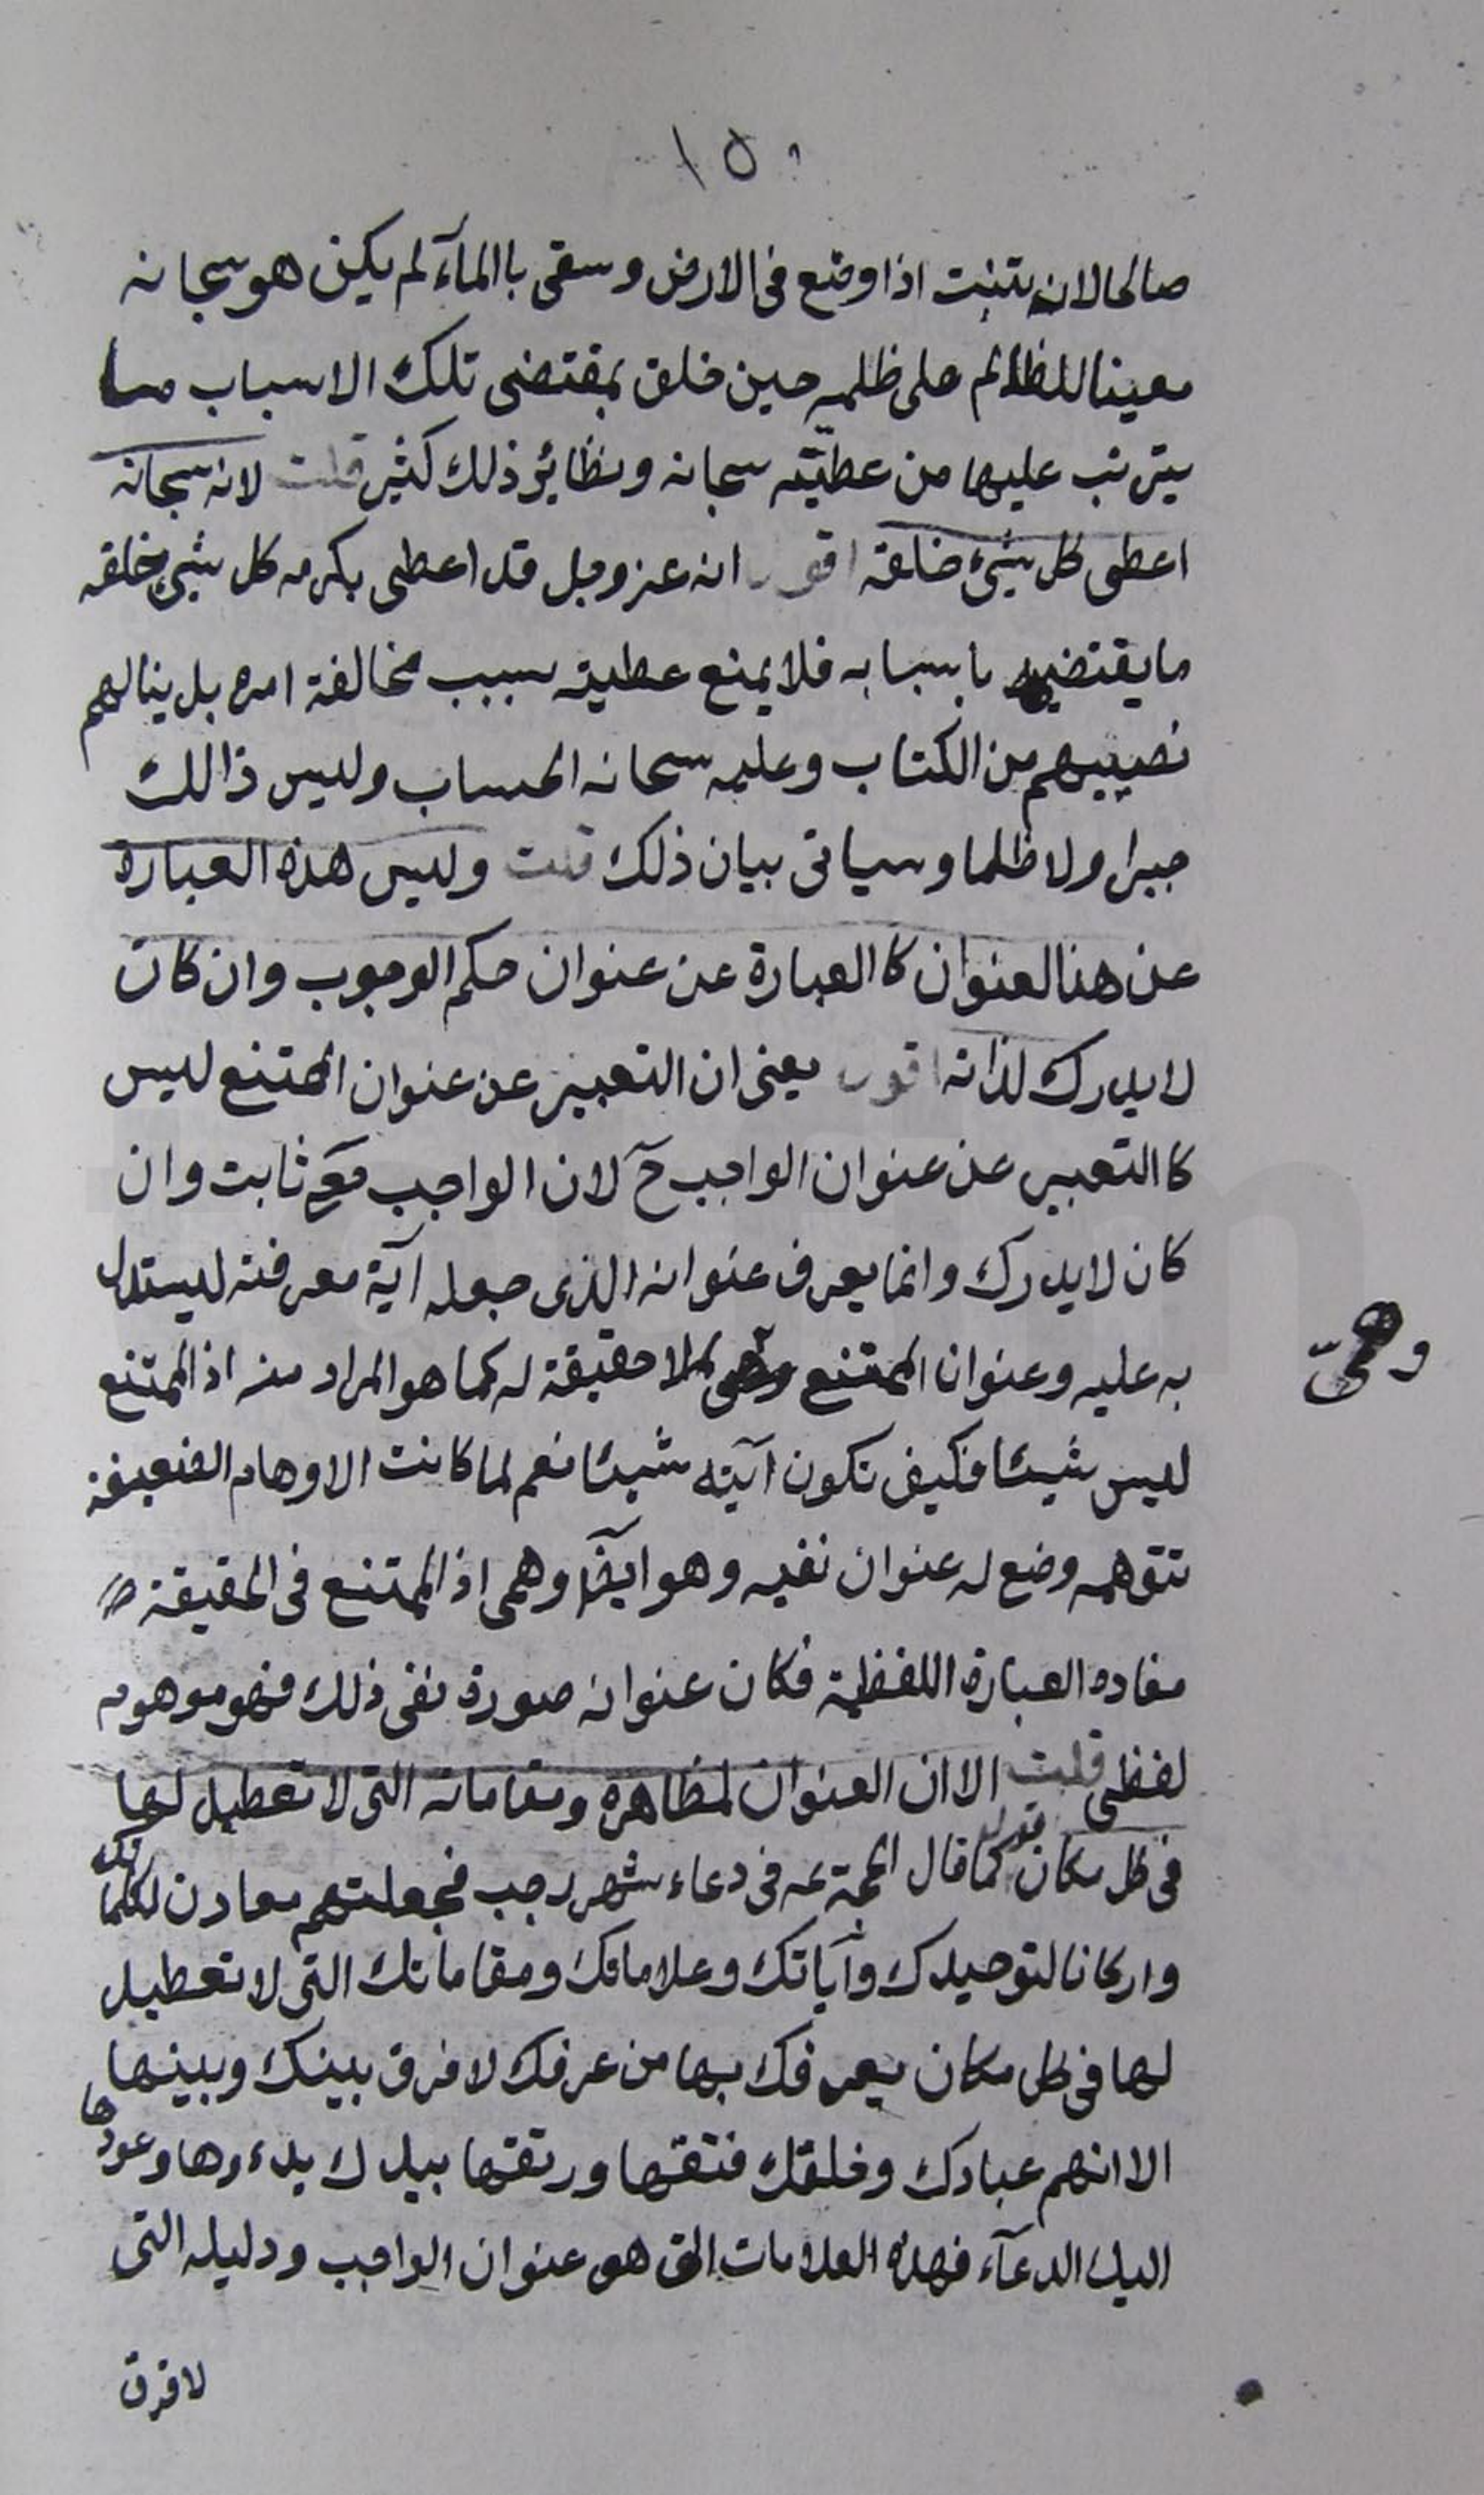 ١٥٠
صالحا لان يتنبت اذا وضع فى الارض وسقى باالمآء لم يكن هو سبحانه
معينا للظالم على ظلمه حين خلق بمقتضى تلك الاسباب ما
يترتب عليها من عطيّته سبحانه ونظاير ذلك كثير قلت لانه سبحانه
اعطى كل شىء خلقه اقول انه عز وجل قد اعطى بكرمه كل شىء خلقه
ما يقتضيه باسبابه فلا يمنع عطيته بسبب مخالفة امره بل ينالهم
نصيبهم من الكتاب وعليه سبحانه الحساب وليس ذالك
جبرا ولا ظلما وسياتى بيان ذلك قلت وليس هذه العبارة
عن هذا العنوان كا العبارة عن عنوان حكم الوجوب وان كان
لا يدرك لذاته اقول يعنى ان التعبير عن عنوان الممتنع ليس
كا التعبير عن عنوان الواجب حۤ لان الواجب تعۤ ثابت وان
كان لا يدرك وانما يعرف عنوانه الذى جعله آية معرفته ليستدل
به عليه وعنوان الممتنع لا حقيقة له كما هو المراد منه اذ الممتنع
وهمىّ
ليس شيئا فكيف تكون آيته شيئا نعم لما كانت الاوهام الضعيفة
تتوهمه وضع له عنوان نفيه وهو ايضۤا وهمى اذ الممتنع فى الحقيقة
مفاده العبارة اللفظية فكان عنوانه صورة نفى ذلك فهو موهوم
لفظى قلت الا ان العنوان لمظاهره ومقاماته التى لا تعطيل لها
فى كل مكان اقول كما قال الحجة عه فى دعاء شهر رجب فجعلتهم معادن لكلماتك
واركانا لتوحيدك وآياتك وعلاماتك ومقاماتك التى لا تعطيل
لها فى كل مكان يعرفك بها من عرفك لا فرق بينك وبينها
الا انهم عبادك وخلقك فتقها ورتقها بيدك بدءوها وعودها
اليك الدعآء فهذه العلامات التى هو عنوان الواجب ودليله التى
لا فرق